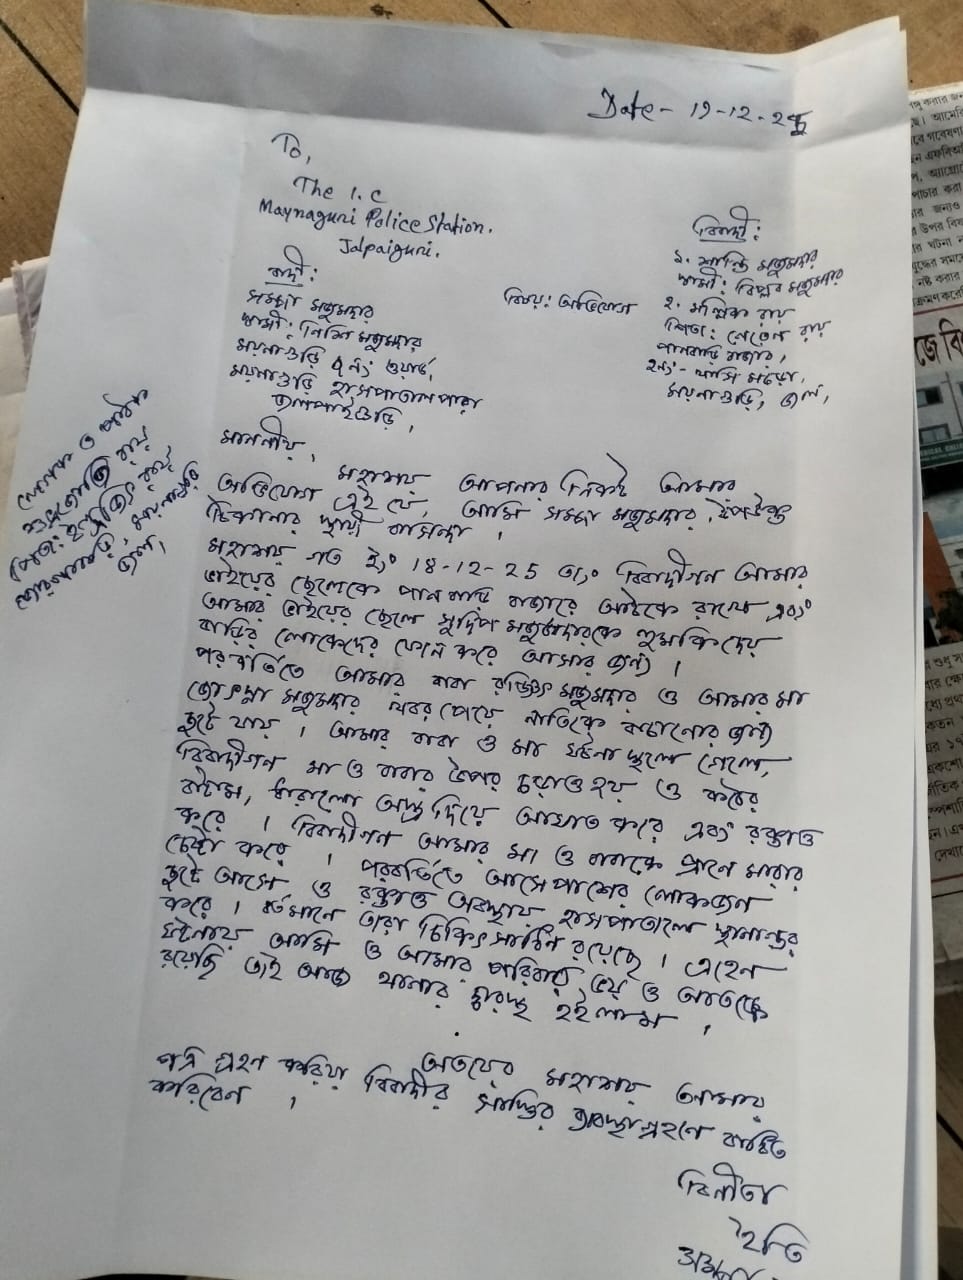 Date - 19-12-25
To,
The I.C
Maynaguri Police Station.
Jalpaiguri.
বাদী:
মজুমদার
স্বামী: নিশি মজুমদার
ময়নাগুড়ি ৭ নং ওয়ার্ড,
ময়নাগুড়ি হাসপাতাল পাড়া
জলপাইগুড়ি,
বিষয়: অভিযোগ
বিবাদী:
১. শান্তি মজুমদার
স্বামী: বিপ্লব মজুমদার
২. মল্লিক রায়
পিতা: রায়
পানবাড়ি বাজার,
ময়নাগুড়ি, জল,
লেখক ও পাঠক
শুভ্রজ্যোতি রায়
পিতা: ইন্দ্রজিৎ রায়
ময়নাগুড়ি
জল,
মাননীয়,
মহাশয় আপনার নিকট আমার
অভিযোগ এই যে, আমি মজুমদার, উপরউক্ত
ঠিকানার স্থায়ী বাসিন্দা ।
মহাশয় গত ইং 18-12-25 তাং বিবাদীগন আমার
ভাইয়ের ছেলেকে পানবাড়ি বাজারে আটকে রাখে এবং
আমার ভাইয়ের ছেলে সুদিপ মজুমদারকে হুমকি দেয়
বাড়ির লোকেদের ফোন করে আসার জন্য ।
পরবর্তিতে আমার বাবা রঞ্জিত মজুমদার ও আমার মা
জোৎস্না মজুমদার খবর পেয়ে নাতিকে বাচানোর জন্য
ছুটে যায় । আমার বাবা ও মা ঘটনা স্থলে গেলে,
বিবাদীগন মা ও বাবার উপর চড়াও হয় ও কাঠের
বাটাম, ধারালো অস্ত্র দিয়ে আঘাত করে এবং রক্তাক্ত
করে । বিবাদীগন আমার মা ও বাবাকে প্রানে মারার
চেষ্টা করে । পরবর্তিতে আসেপাশের লোকজন
ছুটে আসে ও রক্তাক্ত অবস্থায় হাসপাতালে স্থানান্তর
করে । বর্তমানে তারা চিকিৎসাধীন রয়েছে । এহেন
ঘটনায় আমি ও আমার পরিবার ভয় ও আতঙ্কে
রয়েছি তাই আজ থানার দ্বারস্থ হইলাম ।
অতয়েব মহাশয় আমায়
পত্র গ্রহন করিয়া বিবাদীর শাস্তির ব্যবস্থা গ্রহনে বাধিত
করিবেন ।
বিনীতা
ইতি